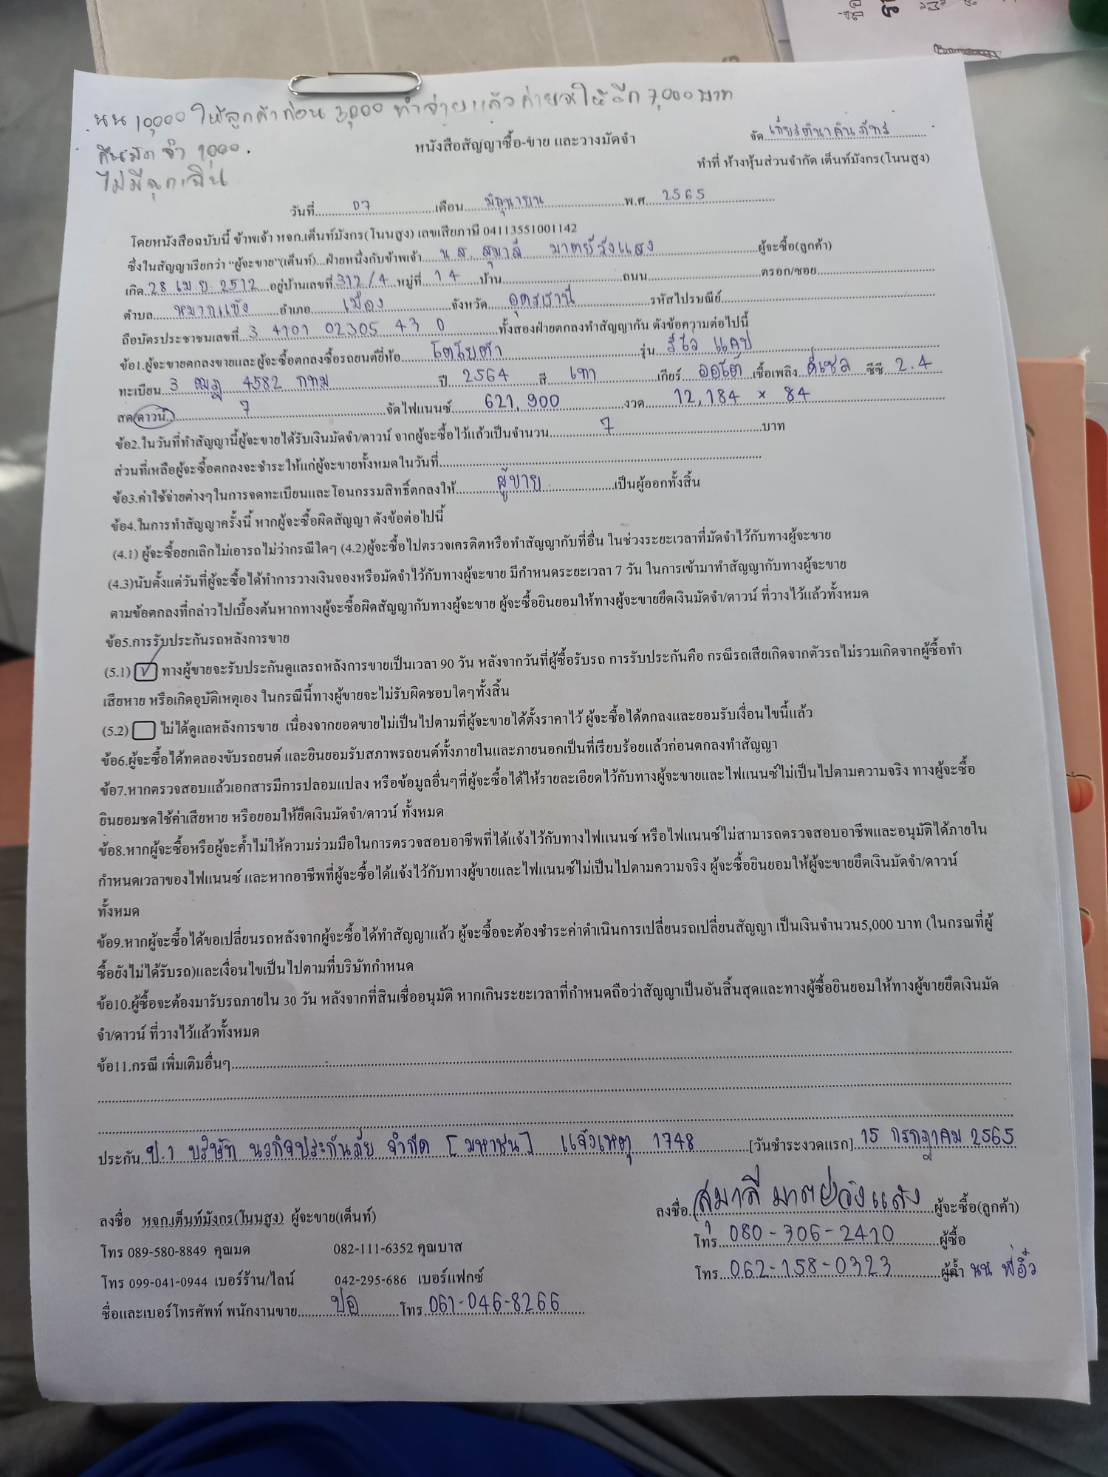 นน 10,000 ให้ลูกค้าก่อน 3,000 ทำจ่ายแล้วค่อยให้อีก 7,000 บาท
คืนมัดจำ 1000.
ไม่มีฉุกเฉิน
หนังสือสัญญาซื้อ-ขาย และวางมัดจำ
จัด เกียรตินาคินภัทร
ทำที่ ห้างหุ้นส่วนจำกัด เต็นท์มังกร(โนนสูง)
วันที่ 07 เดือน มิถุนายน พ.ศ. 2565
โดยหนังสือฉบับนี้ ข้าพเจ้า หจก.เต็นท์มังกร(โนนสูง) เลขเสียภาษี 04113551001142
ซึ่งในสัญญาเรียกว่า "ผู้จะขาย"(เต็นท์)...ฝ่ายหนึ่งกับข้าพเจ้า น.ส. สุมาลี มาตย์วังแสง ผู้จะซื้อ(ลูกค้า)
เกิด 28 เม.ย. 2512 อยู่บ้านเลขที่ 312/4 หมู่ที่ 14 บ้าน ถนน ตรอก/ซอย
ตำบล หมากแข้ง อำเภอ เมือง จังหวัด อุดรธานี รหัสไปรษณีย์
ถือบัตรประชาชนเลขที่ 3 4101 02305 43 0 ทั้งสองฝ่ายตกลงทำสัญญากัน ดังข้อความต่อไปนี้
ข้อ1.ผู้จะขายตกลงขายและผู้จะซื้อตกลงซื้อรถยนต์ยี่ห้อ โตโยต้า รุ่น รีโว่ แคป
ทะเบียน 3 4582 กทม ปี 2564 สี เทา เกียร์ ออโต้ เชื้อเพลิง ดีเซล ซีซี 2.4
สด/ดาวน์ 7 จัดไฟแนนซ์ 621,900 งวด 12,184 × 84
ข้อ2.ในวันที่ทำสัญญานี้ผู้จะขายได้รับเงินมัดจำ/ดาวน์ จากผู้จะซื้อไว้แล้วเป็นจำนวน 7 บาท
ส่วนที่เหลือผู้จะซื้อตกลงจะชำระให้แก่ผู้จะขายทั้งหมดในวันที่
ข้อ3.ค่าใช้จ่ายต่างๆในการจดทะเบียนและโอนกรรมสิทธิ์ตกลงให้ ผู้ขาย เป็นผู้ออกทั้งสิ้น
ข้อ4.ในการทำสัญญาครั้งนี้ หากผู้จะซื้อผิดสัญญา ดังข้อต่อไปนี้
(4.1) ผู้จะซื้อยกเลิกไม่เอารถไม่ว่ากรณีใดๆ (4.2)ผู้จะซื้อไปตรวจเครดิตหรือทำสัญญากับที่อื่น ในช่วงระยะเวลาที่มัดจำไว้กับทางผู้จะขาย
(4.3)นับตั้งแต่วันที่ผู้จะซื้อได้ทำการวางเงินจองหรือมัดจำไว้กับทางผู้จะขาย มีกำหนดระยะเวลา 7 วัน ในการเข้ามาทำสัญญากับทางผู้จะขาย
ตามข้อตกลงที่กล่าวไปเบื้องต้นหากทางผู้จะซื้อผิดสัญญากับทางผู้จะขาย ผู้จะซื้อยินยอมให้ทางผู้จะขายยึดเงินมัดจำ/ดาวน์ ที่วางไว้แล้วทั้งหมด
ข้อ5.การรับประกันรถหลังการขาย
(5.1) ✓ ทางผู้ขายจะรับประกันดูแลรถหลังการขายเป็นเวลา 90 วัน หลังจากวันที่ผู้ซื้อรับรถ การรับประกันคือ กรณีรถเสียเกิดจากตัวรถไม่รวมเกิดจากผู้ซื้อทำ
เสียหาย หรือเกิดอุบัติเหตุเอง ในกรณีนี้ทางผู้ขายจะไม่รับผิดชอบใดๆทั้งสิ้น
(5.2) ไม่ได้ดูแลหลังการขาย เนื่องจากยอดขายไม่เป็นไปตามที่ผู้จะขายได้ตั้งราคาไว้ ผู้จะซื้อได้ตกลงและยอมรับเงื่อนไขนี้แล้ว
ข้อ6.ผู้จะซื้อได้ทดลองขับรถยนต์ และยินยอมรับสภาพรถยนต์ทั้งภายในและภายนอกเป็นที่เรียบร้อยแล้วก่อนตกลงทำสัญญา
ข้อ7.หากตรวจสอบแล้วเอกสารมีการปลอมแปลง หรือข้อมูลอื่นๆที่ผู้จะซื้อได้ให้รายละเอียดไว้กับทางผู้จะขายและไฟแนนซ์ไม่เป็นไปตามความจริง ทางผู้จะซื้อ
ยินยอมชดใช้ค่าเสียหาย หรือยอมให้ยึดเงินมัดจำ/ดาวน์ ทั้งหมด
ข้อ8.หากผู้จะซื้อหรือผู้จะค้ำไม่ให้ความร่วมมือในการตรวจสอบอาชีพที่ได้แจ้งไว้กับทางไฟแนนซ์ หรือไฟแนนซ์ไม่สามารถตรวจสอบอาชีพและอนุมัติได้ภายใน
กำหนดเวลาของไฟแนนซ์ และหากอาชีพที่ผู้จะซื้อได้แจ้งไว้กับทางผู้ขายและไฟแนนซ์ไม่เป็นไปตามความจริง ผู้จะซื้อยินยอมให้ผู้จะขายยึดเงินมัดจำ/ดาวน์
ทั้งหมด
ข้อ9.หากผู้จะซื้อได้ขอเปลี่ยนรถหลังจากผู้จะซื้อได้ทำสัญญาแล้ว ผู้จะซื้อจะต้องชำระค่าดำเนินการเปลี่ยนรถเปลี่ยนสัญญา เป็นเงินจำนวน5,000 บาท (ในกรณที่ผู้
ซื้อยังไม่ได้รับรถ)และเงื่อนไขเป็นไปตามที่บริษัทกำหนด
ข้อ10.ผู้ซื้อจะต้องมารับรถภายใน 30 วัน หลังจากที่สินเชื่ออนุมัติ หากเกินระยะเวลาที่กำหนดถือว่าสัญญาเป็นอันสิ้นสุดและทางผู้ซื้อยินยอมให้ทางผู้ขายยึดเงินมัด
จำ/ดาวน์ ที่วางไว้แล้วทั้งหมด
ข้อ11.กรณี เพิ่มเติมอื่นๆ
ประกัน ป.1 บริษัท นวกิจประกันภัย จำกัด [มหาชน] แจ้งเหตุ 1748 [วันชำระงวดแรก] 15 กรกฎาคม 2565
ลงชื่อ หจก.เต็นท์มังกร(โนนสูง) ผู้จะขาย(เต็นท์)
ลงชื่อ สุมาลี มาตย์วังแสง ผู้จะซื้อ(ลูกค้า)
โทร 089-580-8849 คุณมด 082-111-6352 คุณบาส
โทร 080-306-2410 ผู้ซื้อ
โทร 099-041-0944 เบอร์ร้าน/ไลน์ 042-295-686 เบอร์แฟกซ์
โทร 062-158-0323 ผู้ค้ำ นน พี่อิ๋ว
ชื่อและเบอร์โทรศัพท์ พนักงานขาย ปอ โทร 061-046-8266